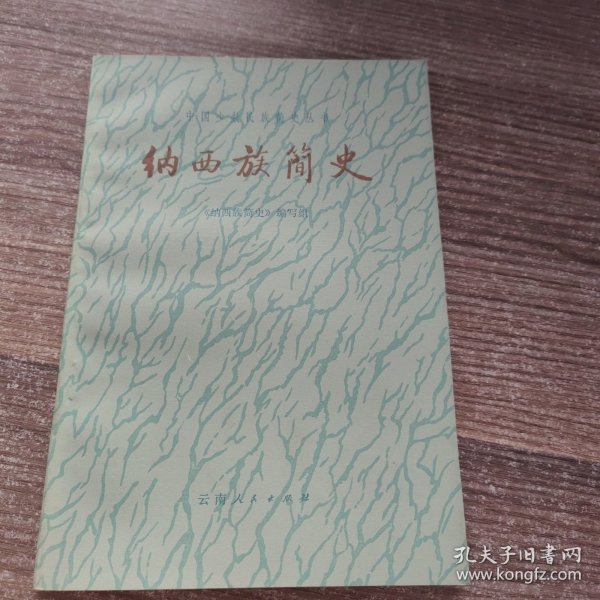 中国少数民族简史丛书
纳西族简史
《纳西族简史》编写组
云南人民出版社
孔夫子旧书网
www.kongfz.com